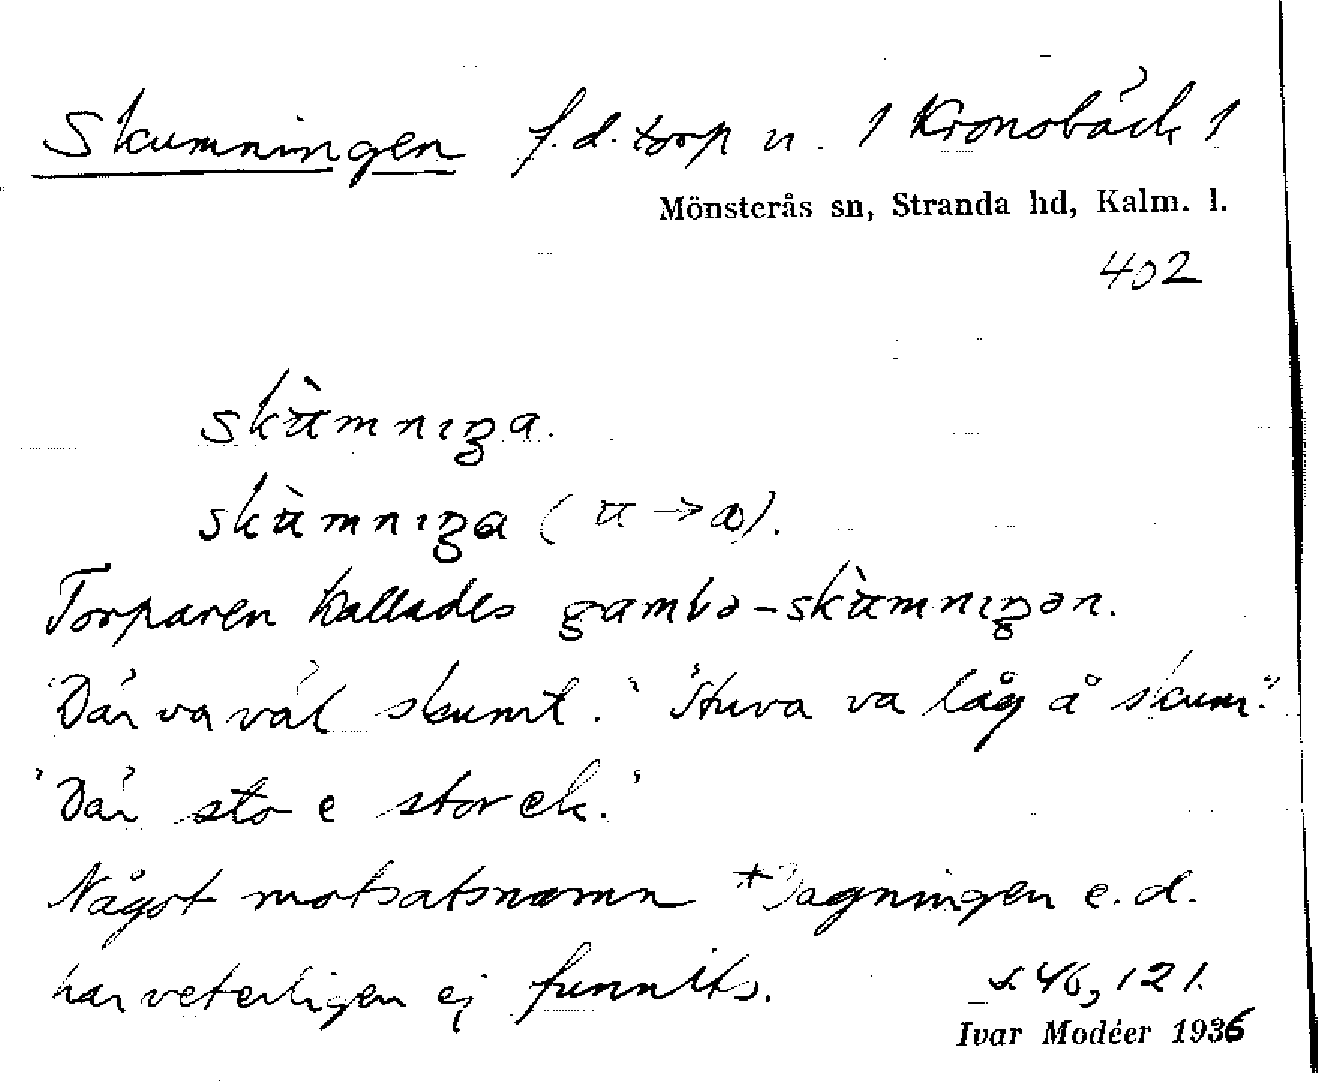 Skumningen f.d. torp u. 1 Kronobäck 1
Mönsterås sn, Stranda hd, Kalm. l.
402
skùmnıŋa.
skùmnıŋa (u → ).
Torparen kallades gambə-skùmnıŋən.
"Där va väl skumt." "Stuva va låg å skum."
"Där sto e stor ek."
Något motsatsnamn *Dagningen e.d.
har veterligen ej funnits.
s. 46, 121.
Ivar Modéer 1936